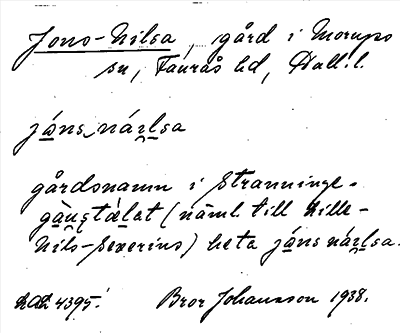 Jons-Nilsa, gård i Morups
sn, Faurås hd, Hall. l.
jáns nárlsa
gårdsnamn i Stranninge-
(näml. till Lille-
Nils-Severins) heta jáns nárlsa.
4395. Bror Johansson 1938.